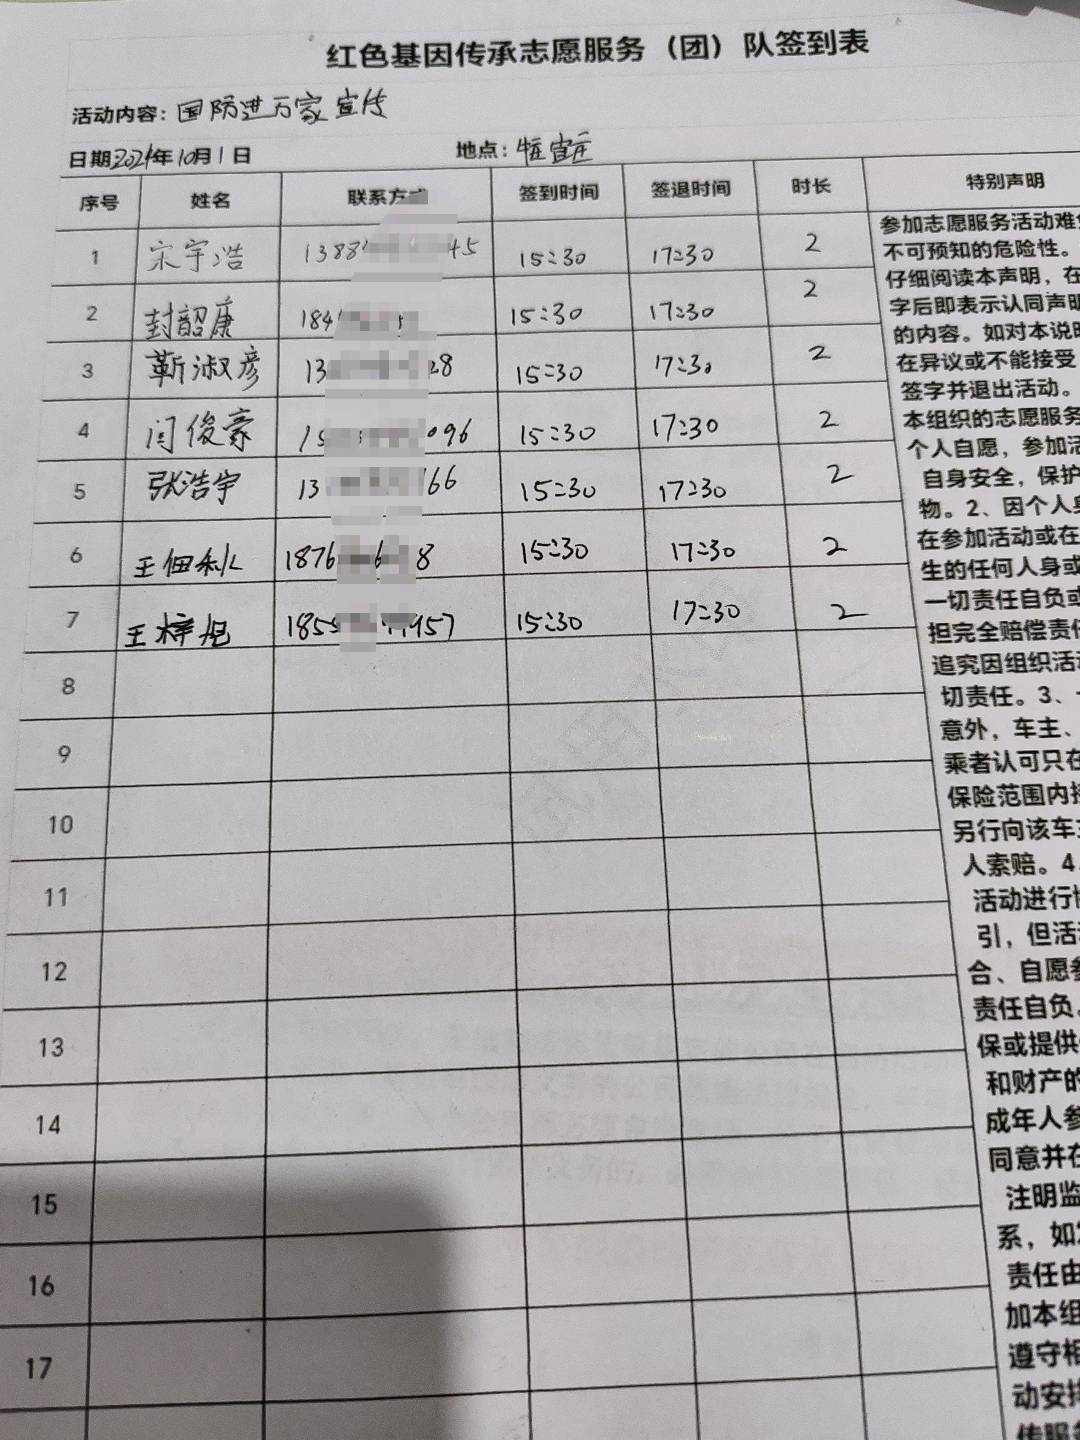 红色基因传承志愿服务（团）队签到表
活动内容：国防进万家宣传
日期2024年10月1日 地点：官庄
序号 姓名 联系方式 签到时间 签退时间 时长 特别声明
1 宋宇浩 1388 45 15:30 17:30 2
2 封韶康 184 15:30 17:30 2
3 靳淑彦 13 28 15:30 17:30 2
4 闫俊豪 15 096 15:30 17:30 2
5 张浩宇 13 166 15:30 17:30 2
6 王佃秋 1876 6 8 15:30 17:30 2
7 王梓旭 1855 957 15:30 17:30 2
8
9
10
11
12
13
14
15
16
17
参加志愿服务活动难免
不可预知的危险性。
仔细阅读本声明，在
字后即表示认同声明
的内容。如对本说明
在异议或不能接受
签字并退出活动。
本组织的志愿服务
个人自愿，参加活
自身安全，保护
物。2、因个人身
在参加活动或在
生的任何人身或
一切责任自负或
担完全赔偿责任
追究因组织活动
切责任。3、
意外，车主、
乘者认可只在
保险范围内
另行向该车主
人索赔。4
活动进行
引，但活动
合、自愿参
责任自负。
保或提供
和财产的
成年人参
同意并在
注明监
系，如
责任由
加本组
遵守相
动安排
传服务